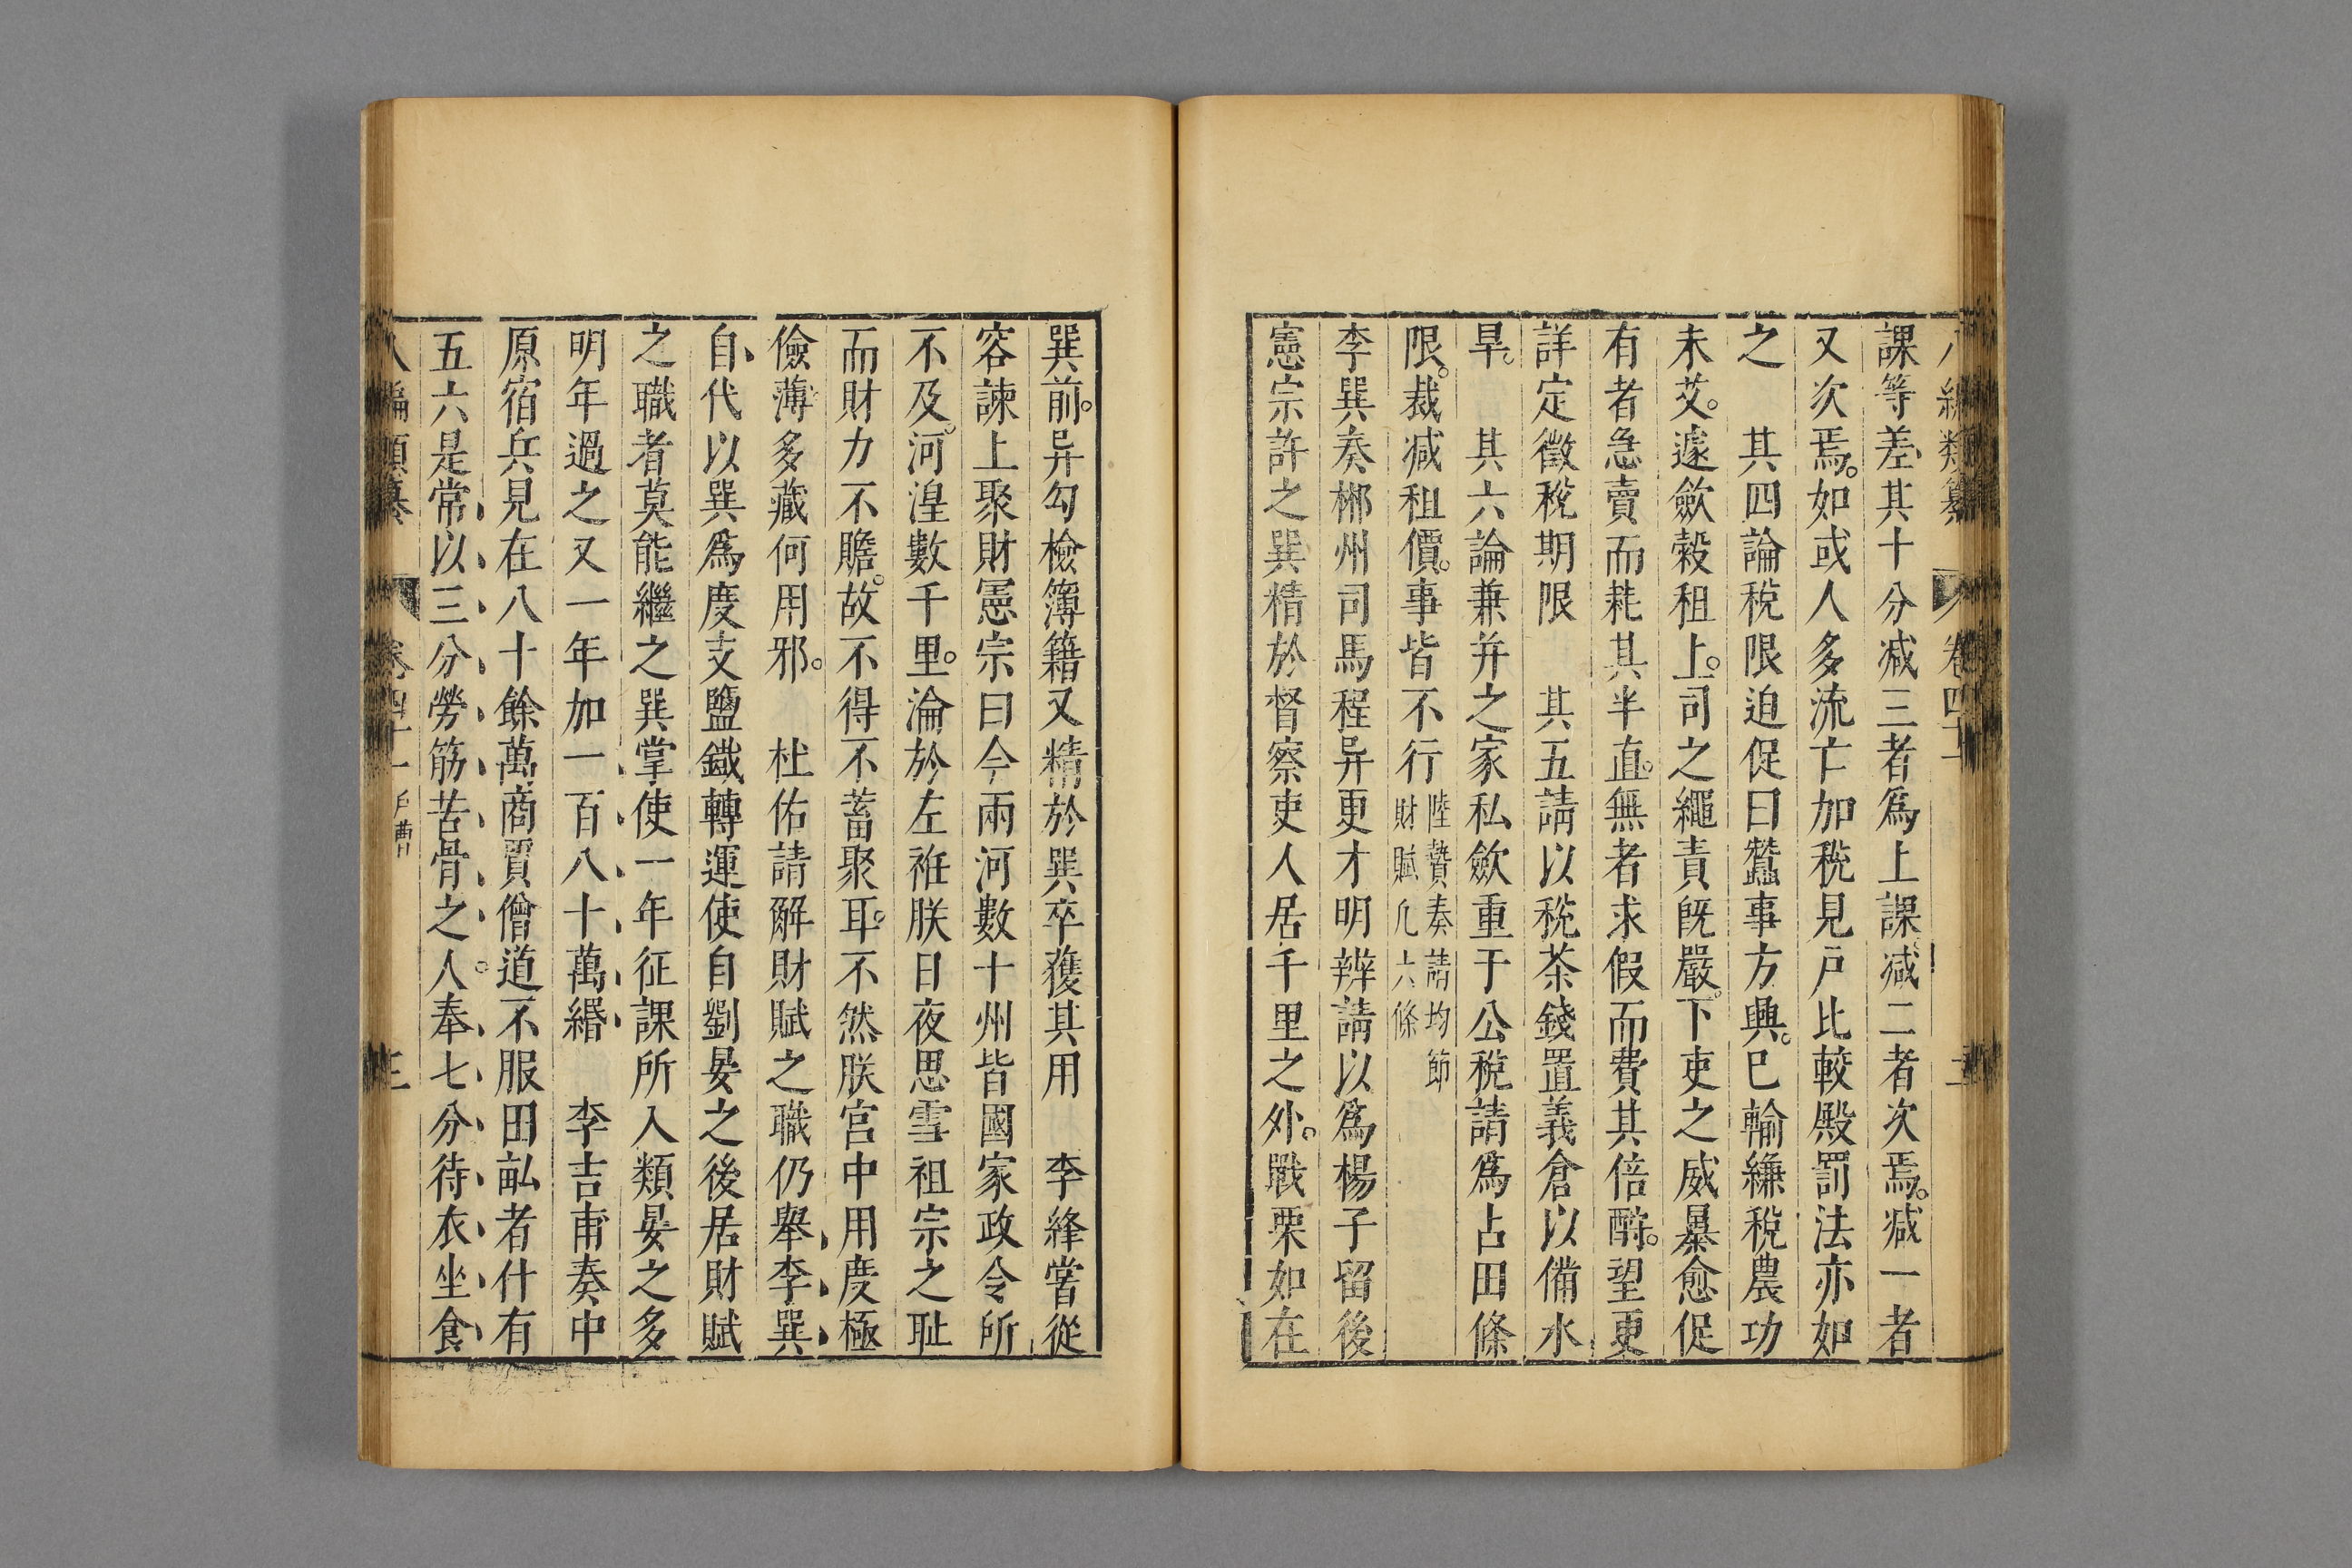 課等差其十分减三者爲上課减二者次焉减一者
又次焉如或人多流亡加稅見戶比較殿罰法亦如
之　其四論稅限迫促曰蠶事方興巳輸縑稅農功
未艾遽歛榖租上司之繩責旣嚴下吏之威暴愈促
有者急賣而耗其半直無者求假而費其倍酧望更
詳定徵稅期限　其五請以稅茶錢置義倉以備水
旱　其六論兼并之家私歛重于公稅請爲占田條
限裁减租價事皆不行陸贄奏請均節財賦凡六條
李巽奏郴州司馬程异更才明辨請以爲楊子留後
憲宗許之巽精於督察吏人居千里之外戰栗如在
巽前异勾檢簿籍又精於巽卒獲其用　李絳甞從
容諫上聚財憲宗曰今兩河數十州皆國家政令所
不及河湟數千里淪於左袵朕日夜思雪祖宗之耻
而財力不贍故不得不蓄聚耳不然朕宮中用度極
儉薄多藏何用邪　杜佑請解財賦之職仍舉李巽
自代以巽爲度支鹽鐵轉運使自劉晏之後居財賦
之職者莫能繼之巽掌使一年征課所入類晏之多
明年過之又一年加一百八十萬緡　李吉甫奏中
原宿兵見在八十餘萬商賈僧道不服田畝者什有
五六是常以三分勞筋苦骨之人奉七分待衣坐食